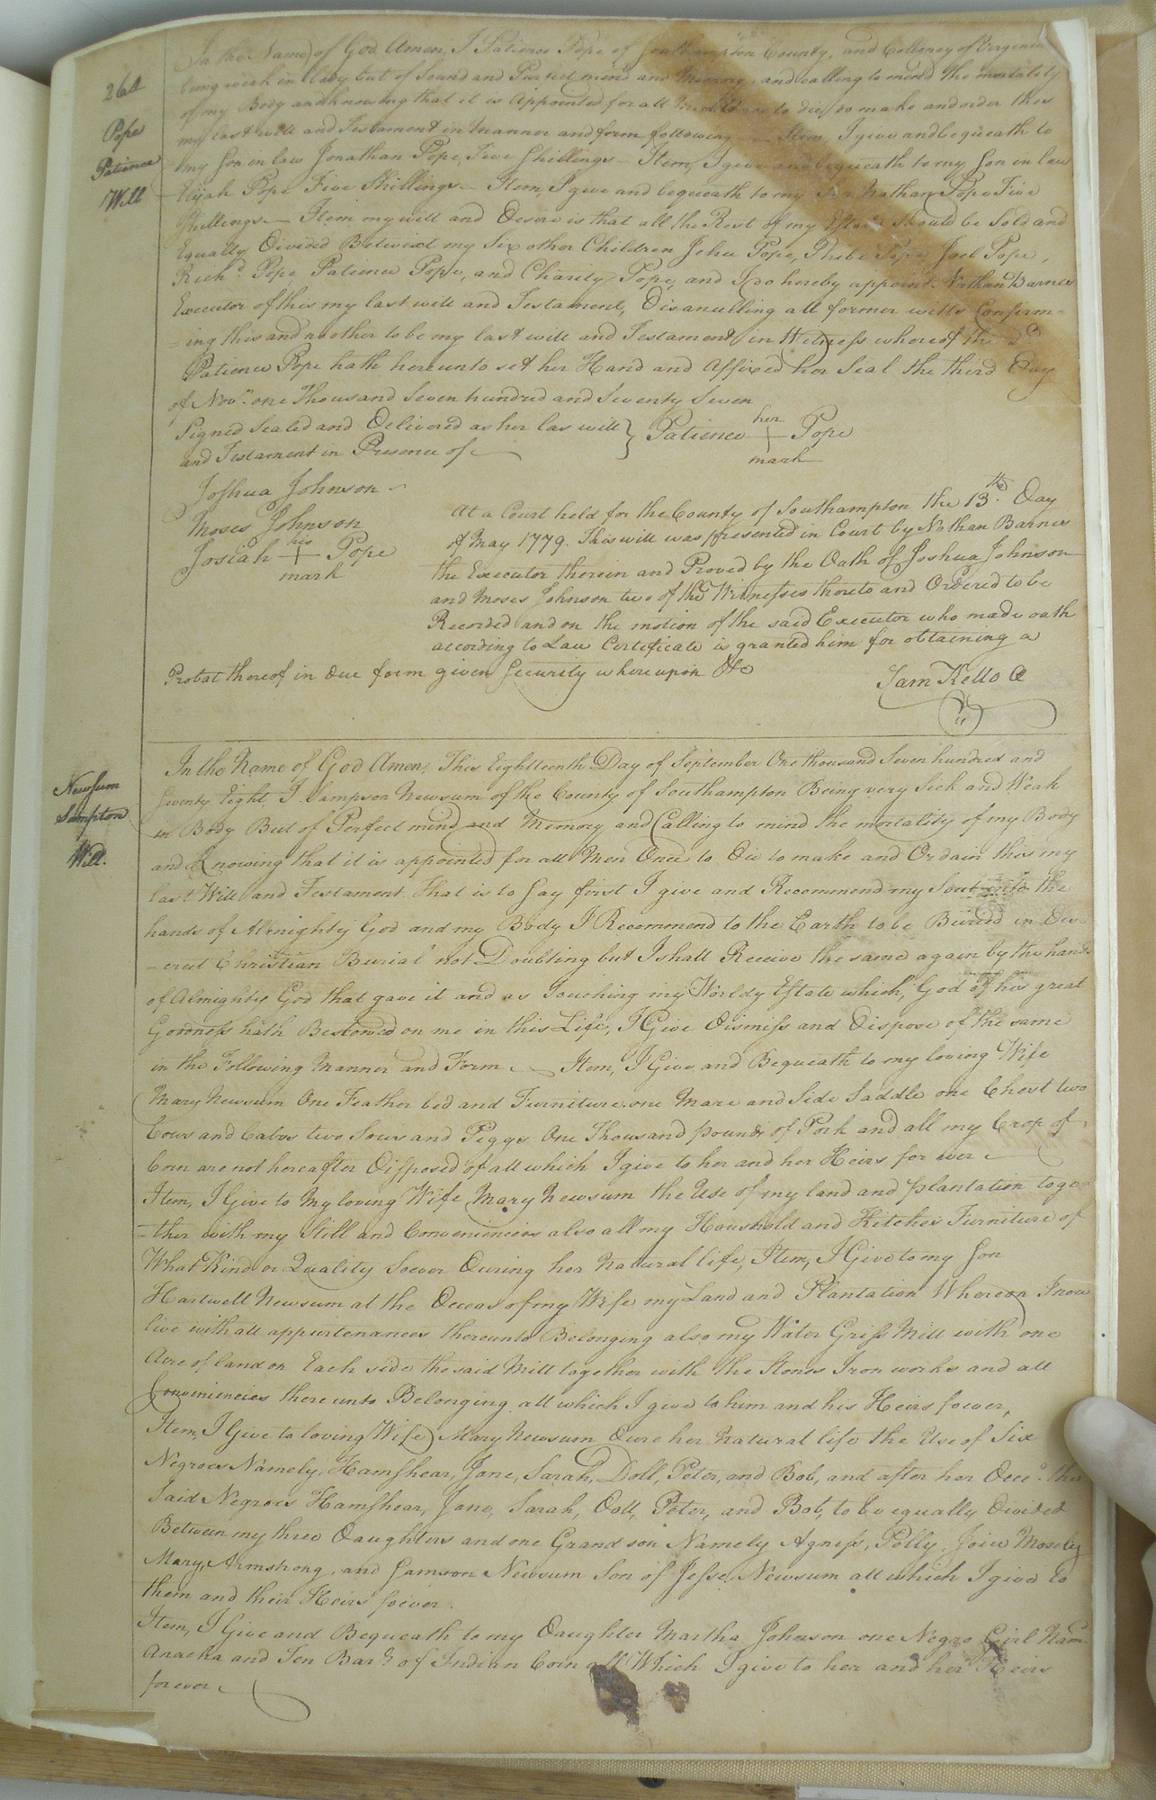 264
Pope
Patience
Will
In the Name of God Amen, I Patience Pope of Southampton County, and Colloney of Virginia
being weak in body but of Sound and Purfect mind and Memory, and calling to mind the mortality
of my Body and knowing that it is Appointed for all to die, do make and order this
my last will and Testament in manner and form following — Item I give and bequeath to
my Son in law Jonathan Pope, Five Shillings — Item, I give and bequeath to my Son in law
Elijah Pope Five Shillings — Item, I give and bequeath to my Son Nathan Pope Five
Shillings — Item my will and Desire is that all the Rest of my Estate Should be Sold and
Equally Divided Betwixt my Six other Children John Pope, Phebe Pope Joel Pope,
Richd. Pope Patience Pope, and Charity Pope, and I do hereby appoint Nathan Barnes
Executor of this my last will and Testament, Disanulling all former wills Confirm-
-ing this and no other to be my last will and Testament, in Witness whereof the Sd.
Patience Pope hath hereunto set her Hand and Affixed her Seal the third Day
of Novr. one Thousand Seven hundred and Seventy Seven
Signed Sealed and Delivered as her las will } Patience her + Pope
and Testament in Presence of mark
Joshua Johnson
Moses Johnson
Josiah his + Pope
mark
At a Court held for the County of Southampton the 13th. Day
of May 1779. This will was presented in Court by Nathan Barnes
the Executor therein and Proved by the Oath of Joshua Johnson
and Moses Johnson two of the Witnesses thereto and Ordered to be
Recorded and on the motion of the said Executor who made oath
according to Law Certificate is granted him for obtaining a
Probat thereof in due form given Security whereupon &c
Sam Kello
Newsum
Sampson
Will.
In the Name of God Amen, This Eighteenth Day of September One thousand Seven hundred and
Seventy Eight I Sampson Newsum of the County of Southampton Being very Sick and Weak
in Body But of Perfect mind and Memory and Calling to mind the mortality of my Body
and Knowing that it is appointed for all Men Once to Die to make and Ordain this my
last Will and Testament That is to Say first I give and Recommend my Soul unto the
hands of Almighty God and my Body I Recommend to the Earth to be Buried in
-cent Christian Burial not Doubting but I shall Receive the same again by the hands
of Almighty God that gave it and as Touching my Worldy Estate which, God of his great
Goodness hath Bestowed on me in this Life, I Give Dismiss and Dispose of the same
in the Following Manner and Form — Item, I Give and Bequeath to my loving Wife
Mary Newsum One Feather bed and Furniture one Mare and Side Saddle one Chest two
Cows and Calves two Sows and Piggs One Thousand pounds of Pork and all my Crop of
Corn are not hereafter Disposed of all which I give to her and her Heirs for ever
Item, I Give to My loving Wife Mary Newsum the Use of my land and plantation toge
-ther with my Still and Conveniencies also all my Houshold and Kitchen Furniture of
What Kind or Quality Soever During her natural life, Item, I Give to my Son
Hartwell Newsum at the Deceas of my Wife my Land and Plantation Whereon I now
live with all appurtenances thereunto Belonging also my Water Grist Mill with one
Acre of land on Each side the said Mill together with the Stones Iron works and all
Conveniencies there unto Belonging all which I give to him and his Heirs forever,
Item, I Give to loving Wife Mary Newsum Dure her natural life the Use of Six
Negroes Namely, Hamshear, Jane, Sarah, Doll, Peter, and Bob, and after her Decd. the
Said Negroes Hamshear, Jane, Sarah, Doll, Peter, and Bob, to be equally Divided
Between my three Daughters and one Grand son Namely Agness, Polly, Moseley
Mary, Armstrong, and Samson Newsum Son of Jesse Newsum all which I give to
them and their Heirs forever.
Item, I Give and Bequeath to my Daughter Martha Johnson one Negro Girl Nam
Anacka and Ten Bars. of Indian Corn all Which I give to her and her Heirs
forever